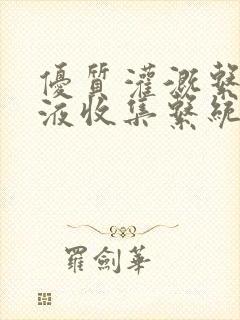 優質灌溉繫
液收集繫統
羅劍華